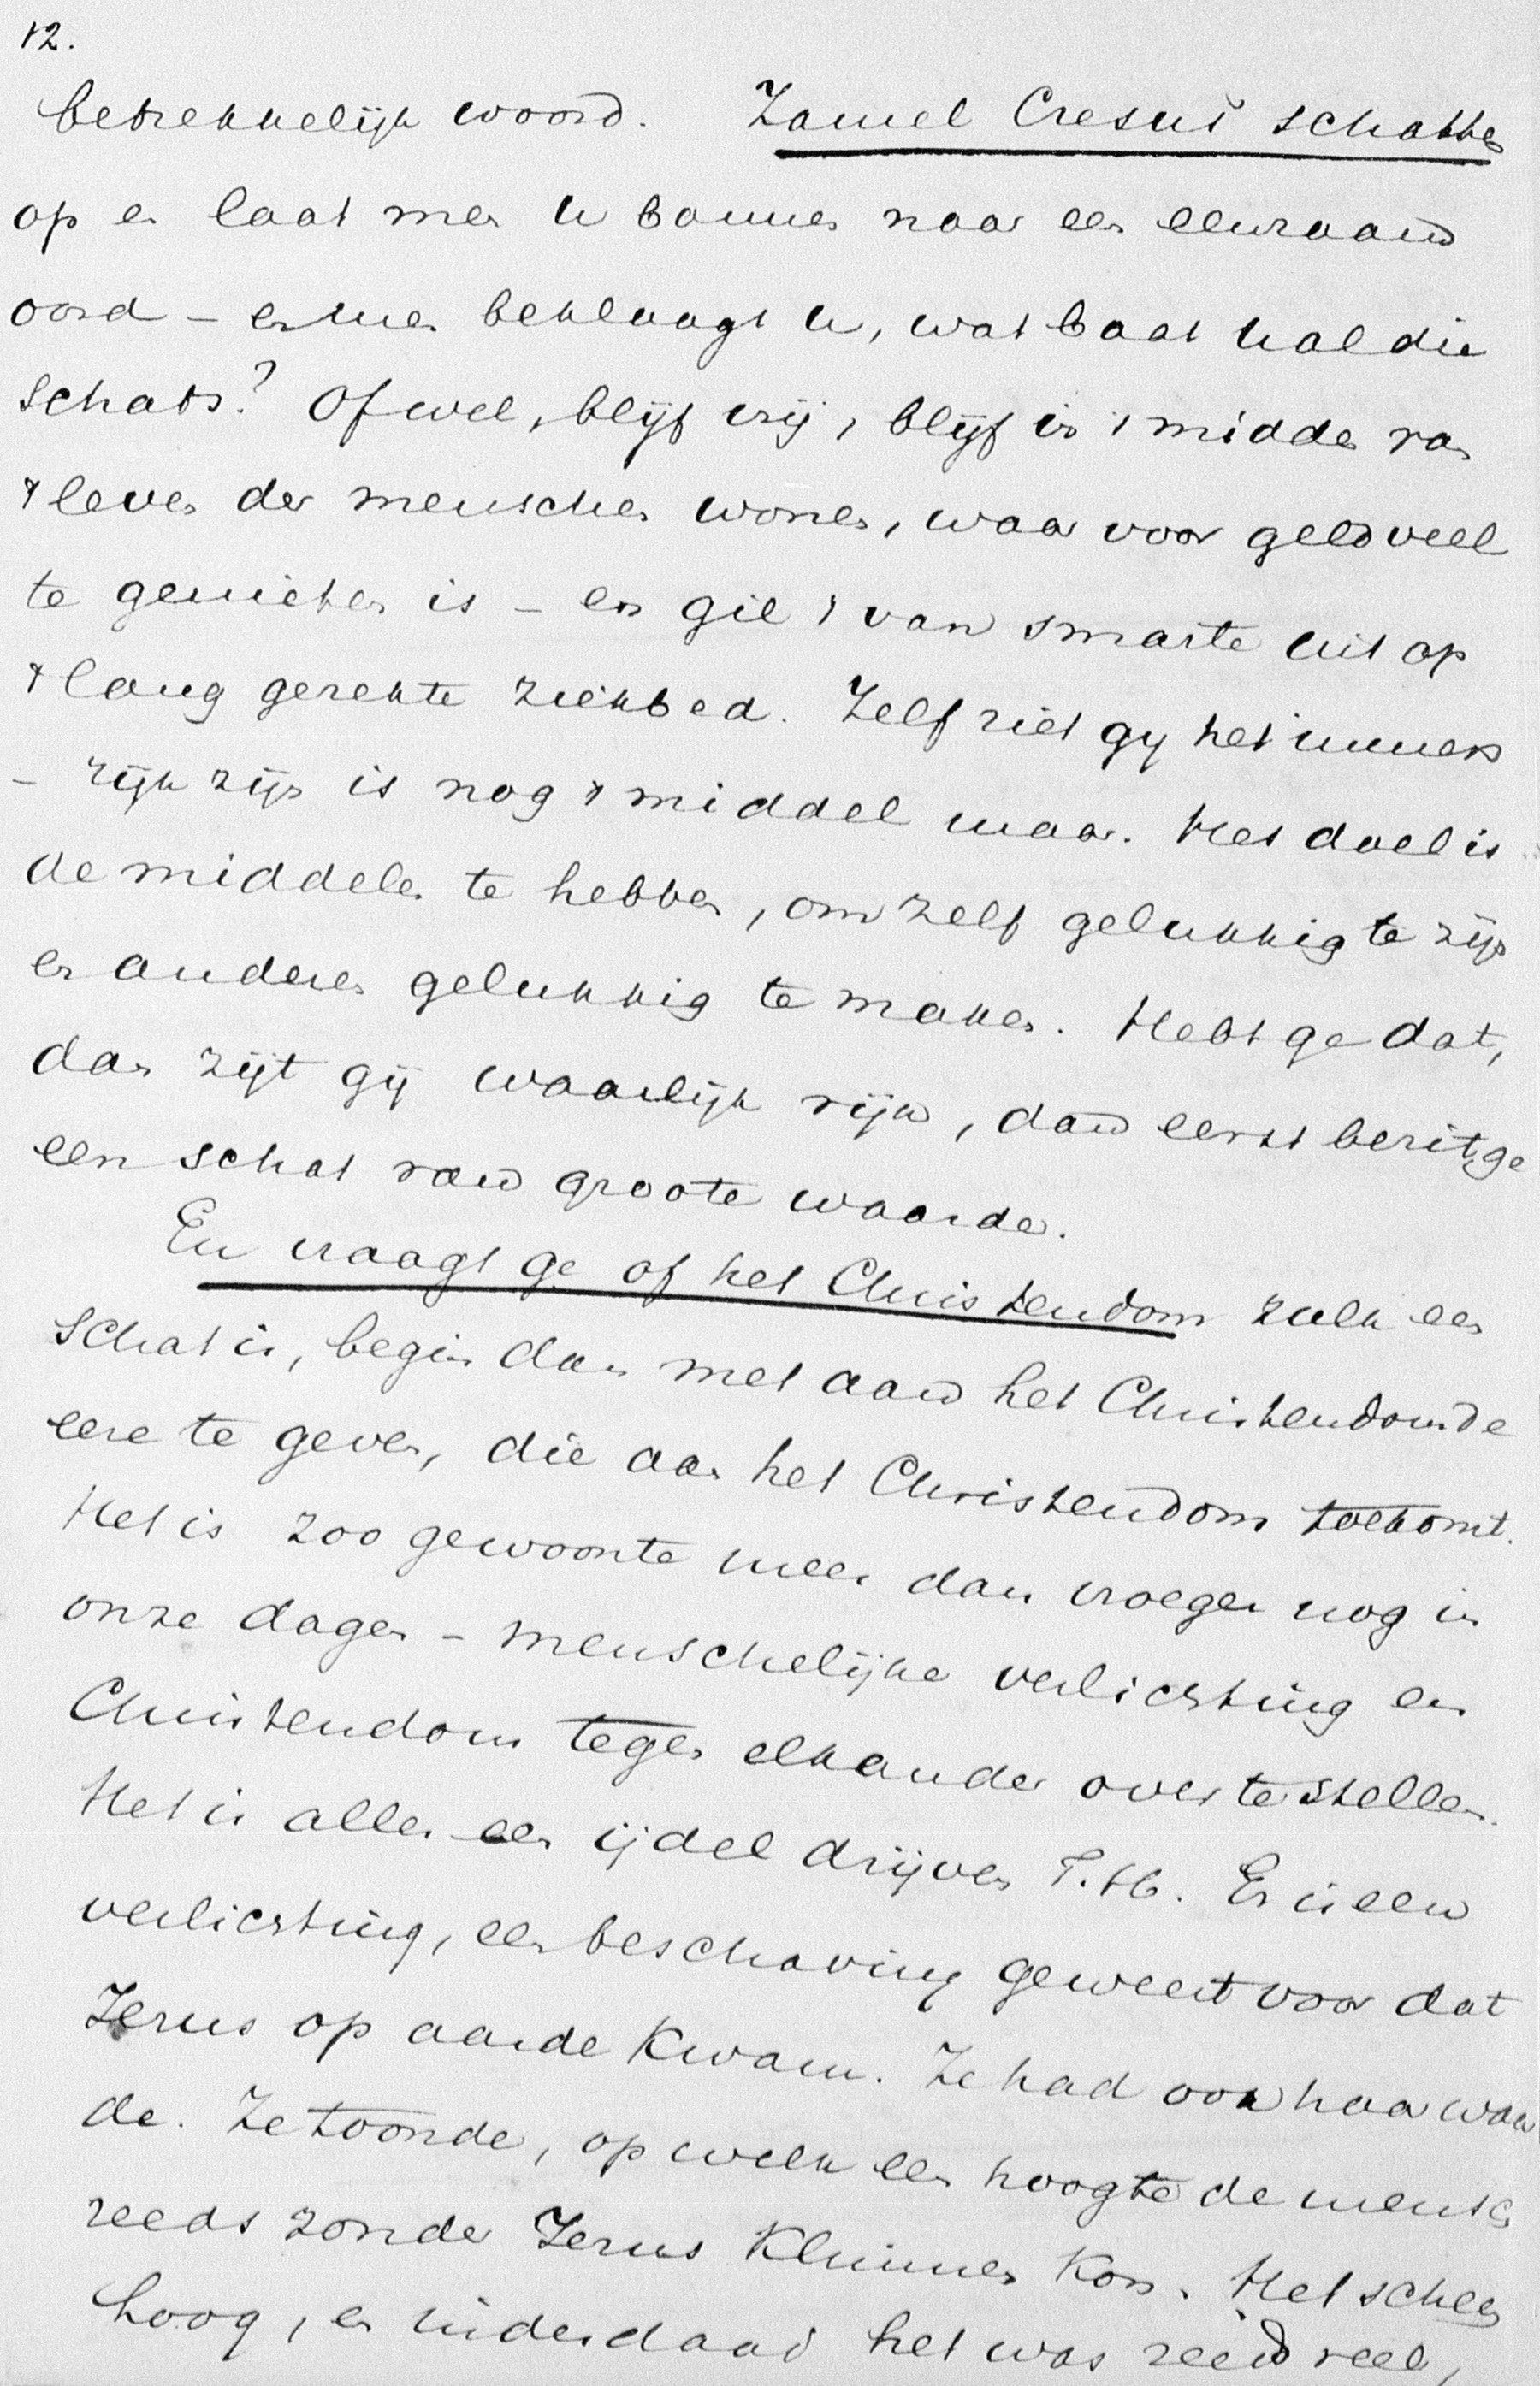 12.
betrekkelijk woord. Zamel Cresus schatten
op en laat men u bannen naar een eenzaam
oord – en men beklaagt u, wat baat u al die
schats? Of wel, blijf vrij, blijf in 't midden van
't leven der menschen wonen, waar voor geld veel
te genieten is – en gil 't van smarte uit op
't lang gerekte ziekbed. Zelf ziet gij het immers
– rijk zijn is nog 't middel maar. Het doel is
de middelen te hebben, om zelf gelukkig te zijn
en anderen gelukkig te maken. Hebt ge dat,
dan zijt gij waarlijk rijk, dan eerst bezit ge
een schat van groote waarde.
En vraagt ge of het Christendom zulk een
schat is, begin dan met aan het Christendom de
eere te geven, die aan het Christendom toekomt.
Het is zoo gewoonte meer dan vroeger nog in
onze dagen – menschelijke verlichting en
Christendom tegen elkander over te stellen.
Het is alles een ijdel drijven T.H. Er is een
verlichting, een beschaving geweest voor dat
Jezus op aarde kwam. Ze had ook haar waar
de. Ze toonde, op welk een hoogte de mensch
reeds zonder Jezus klimmen kon. Het scheen
hoog, en inderdaad het was reeds veel,